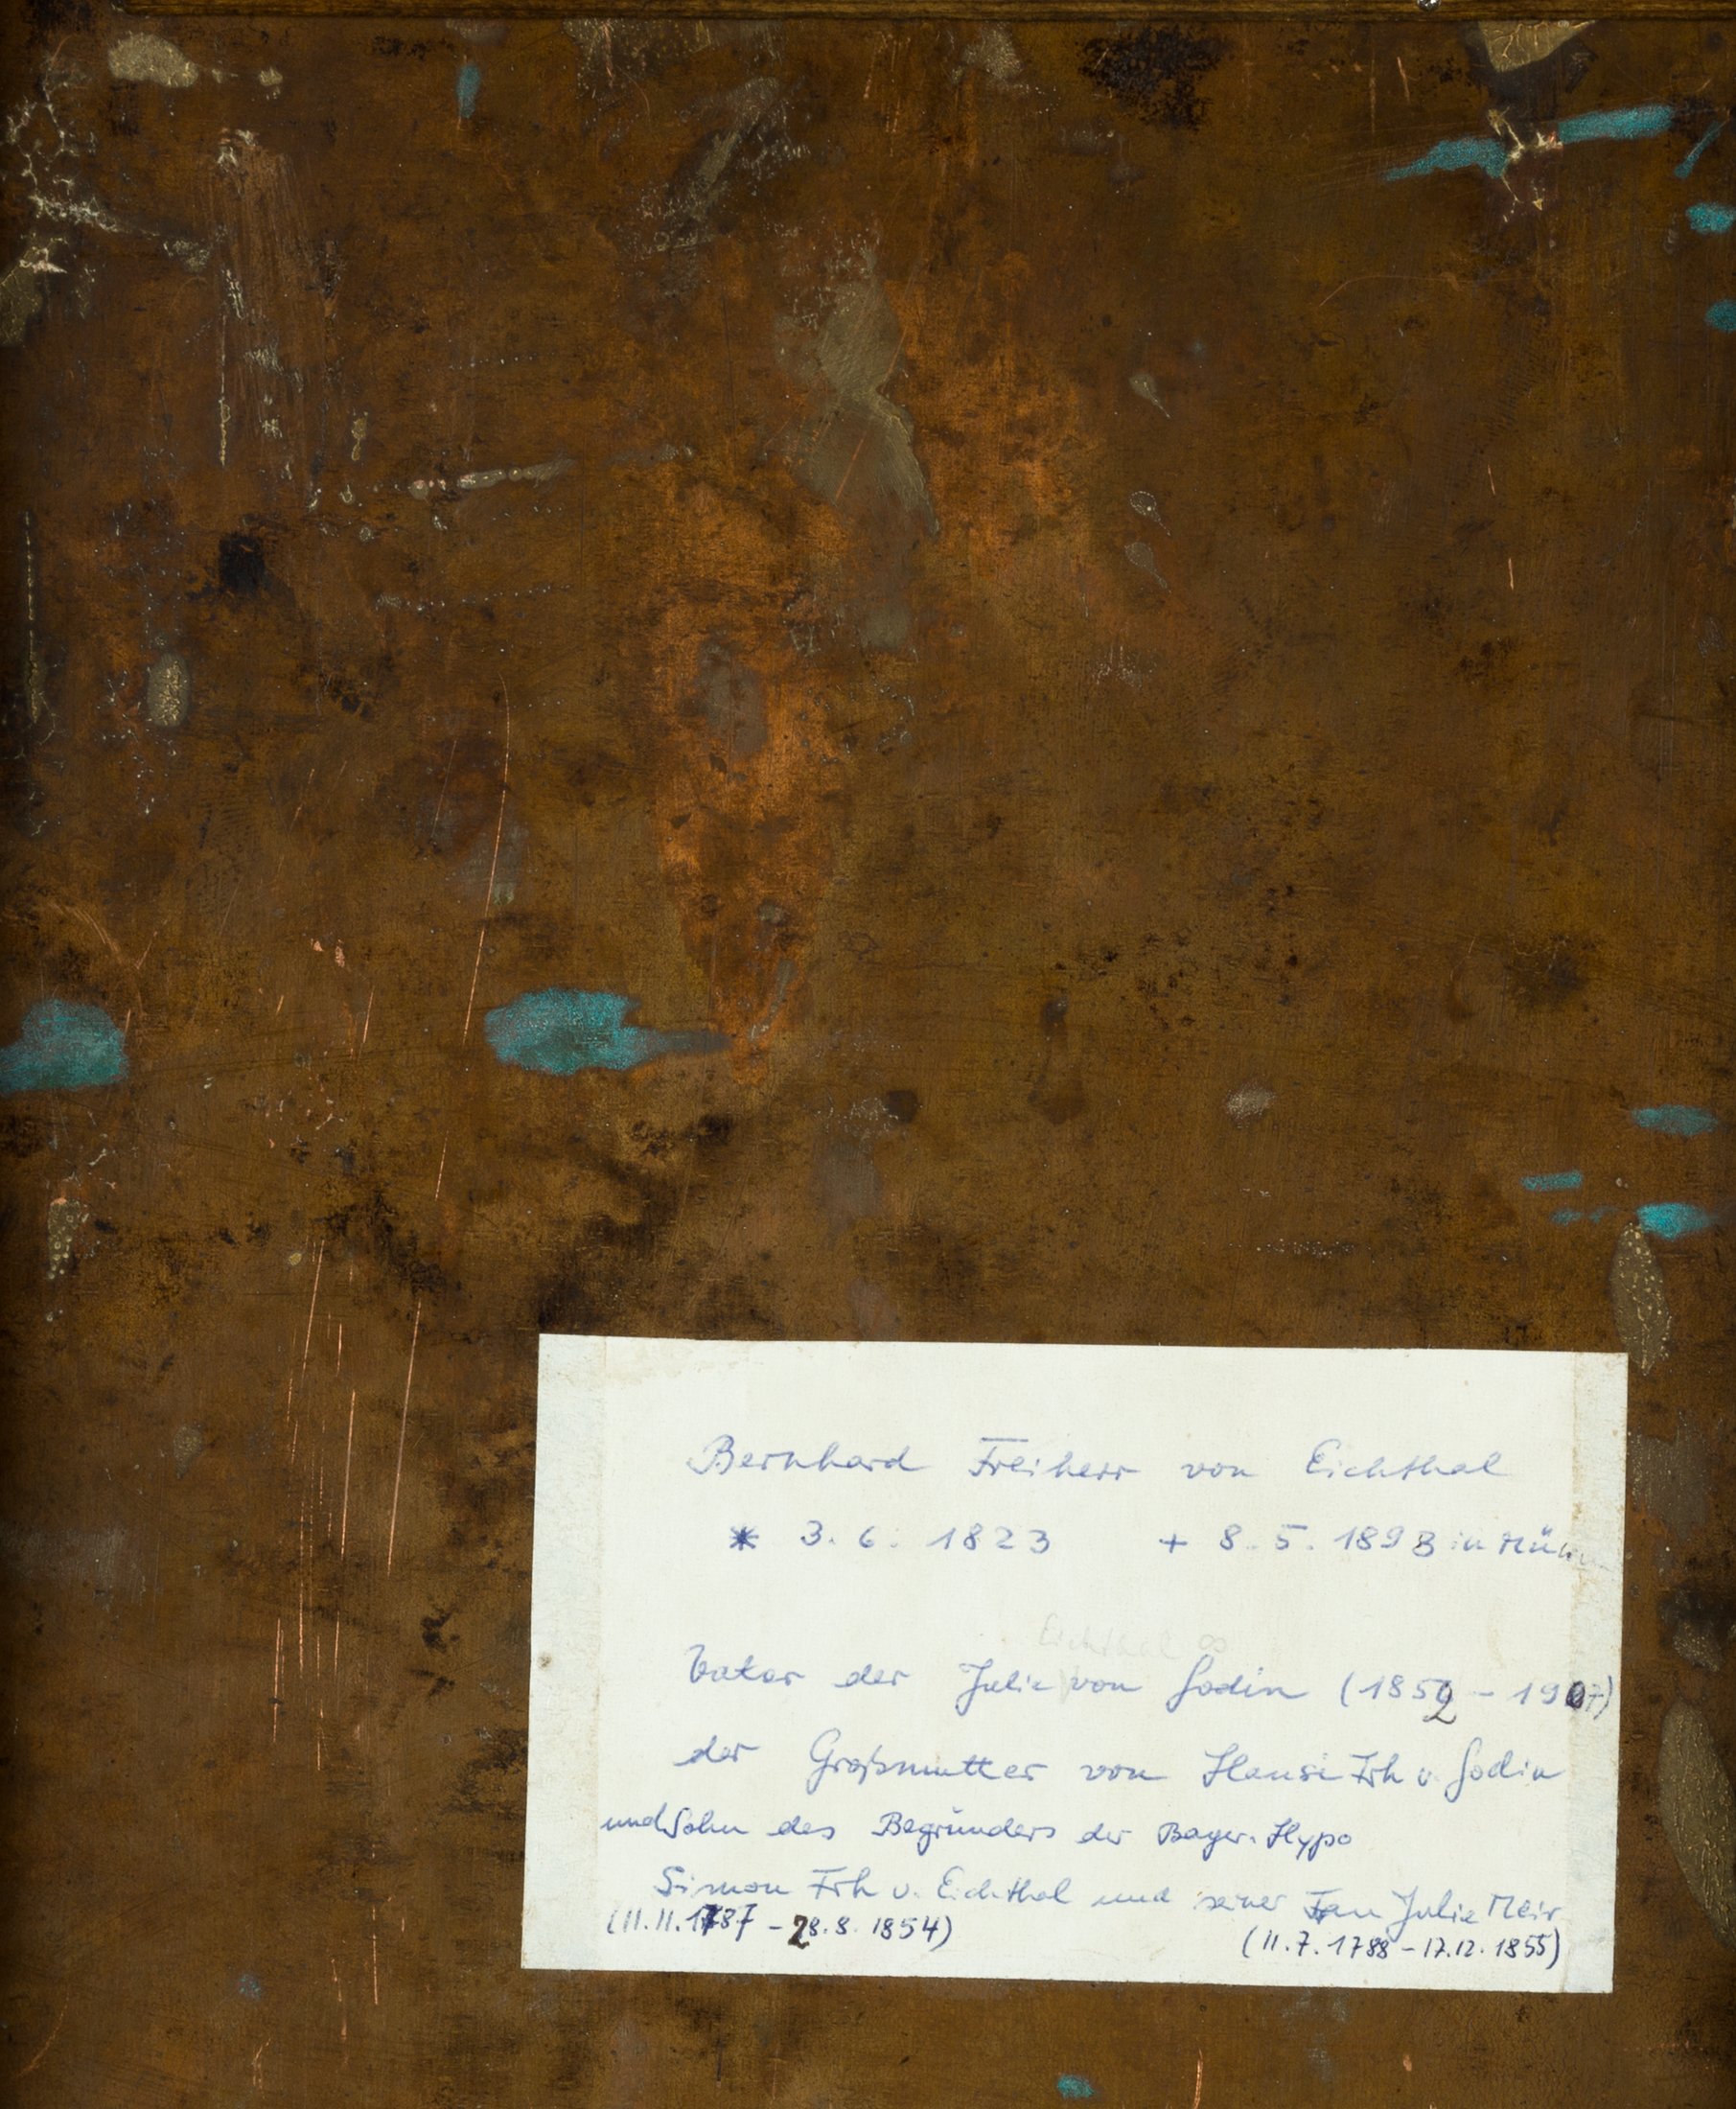 Bernhard Freiherr von Eichthal
* 3. 6. 1823 + 8. 5. 1893 in Mün
Eichthal ∞
Vater der Julie von Godin (1852 - 1907)
der Großmutter von Hansi Frh v. Godin
und Sohn des Begründers der Bayer. Hypo
Simon Frh v. Eichthal und seiner Frau Julie Meir
(11.11.1787 - 28.8.1854) (11.7.1788 - 17.12.1855)